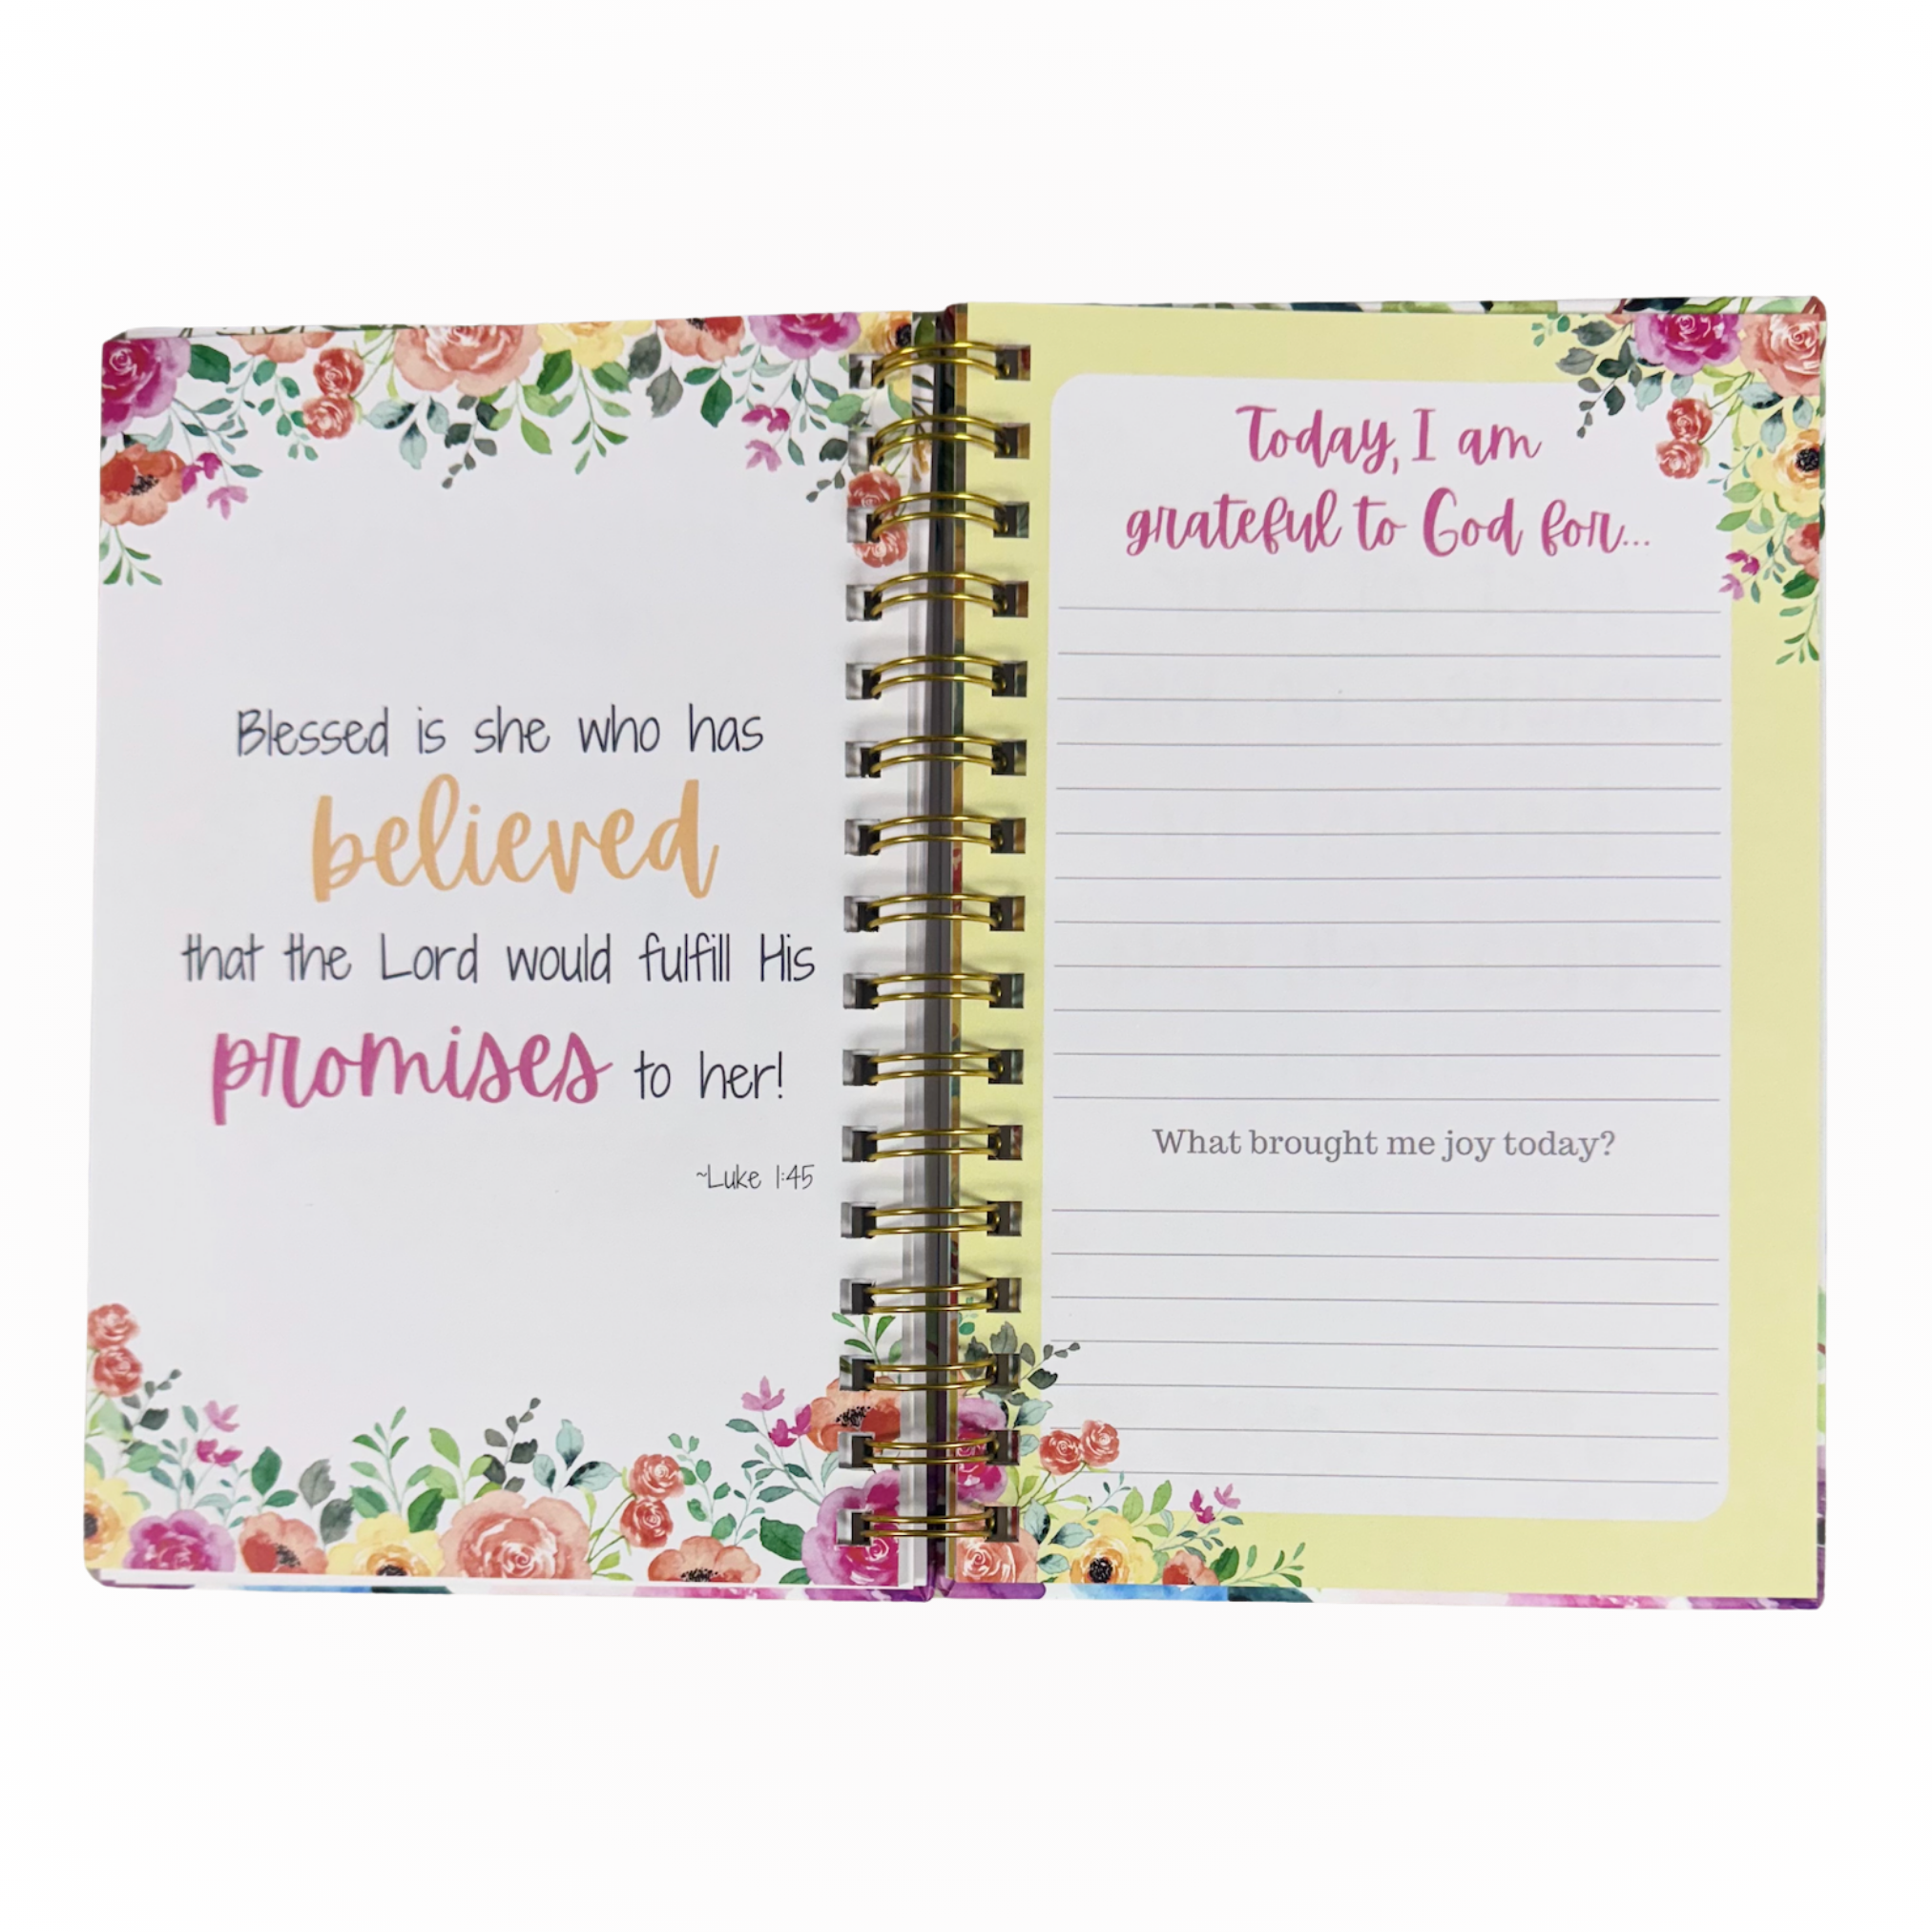 Blessed is she who has
believed
that the Lord would fulfill His
promises to her!
~Luke 1:45
Today, I am
grateful to God for...
What brought me joy today?